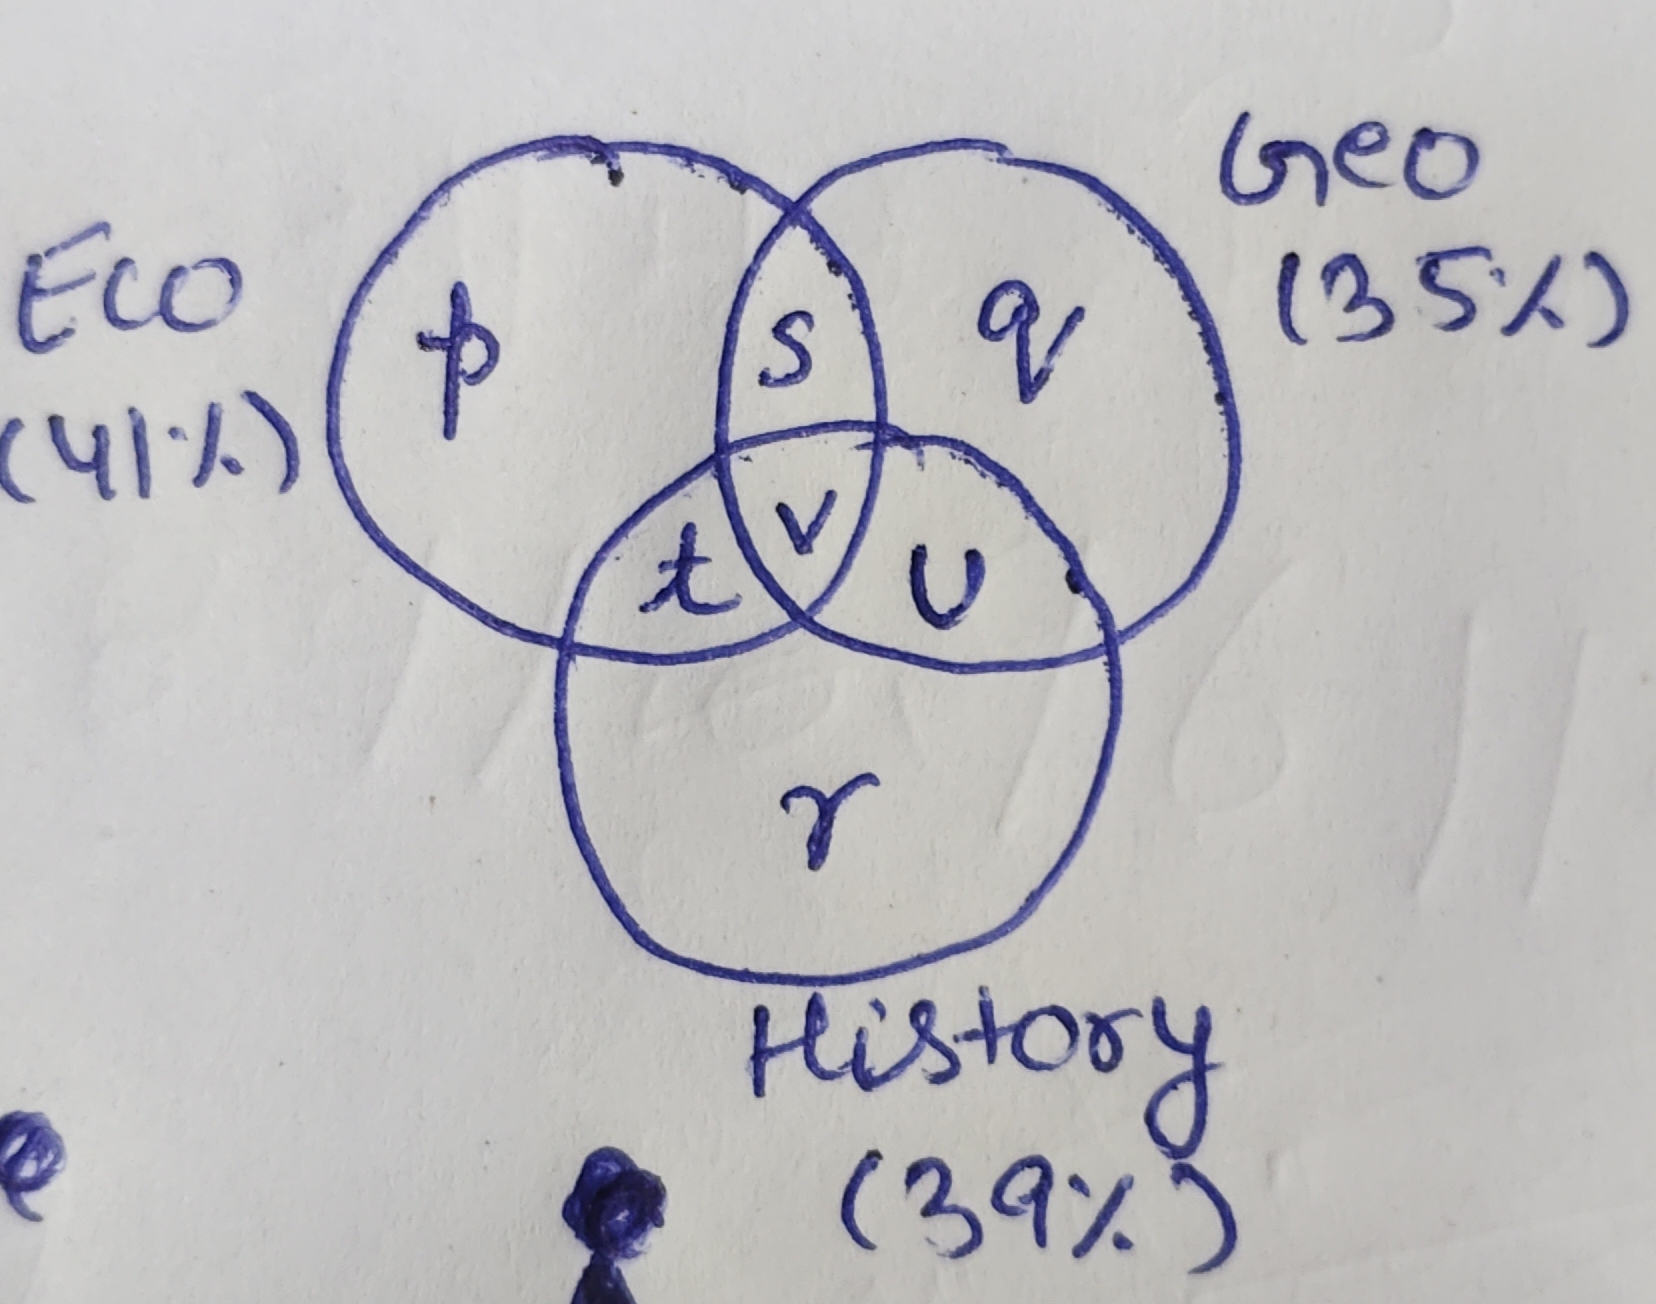 Geo
(35%)
Eco
(41%)
p
s
q
t
v
u
r
History
(39%)